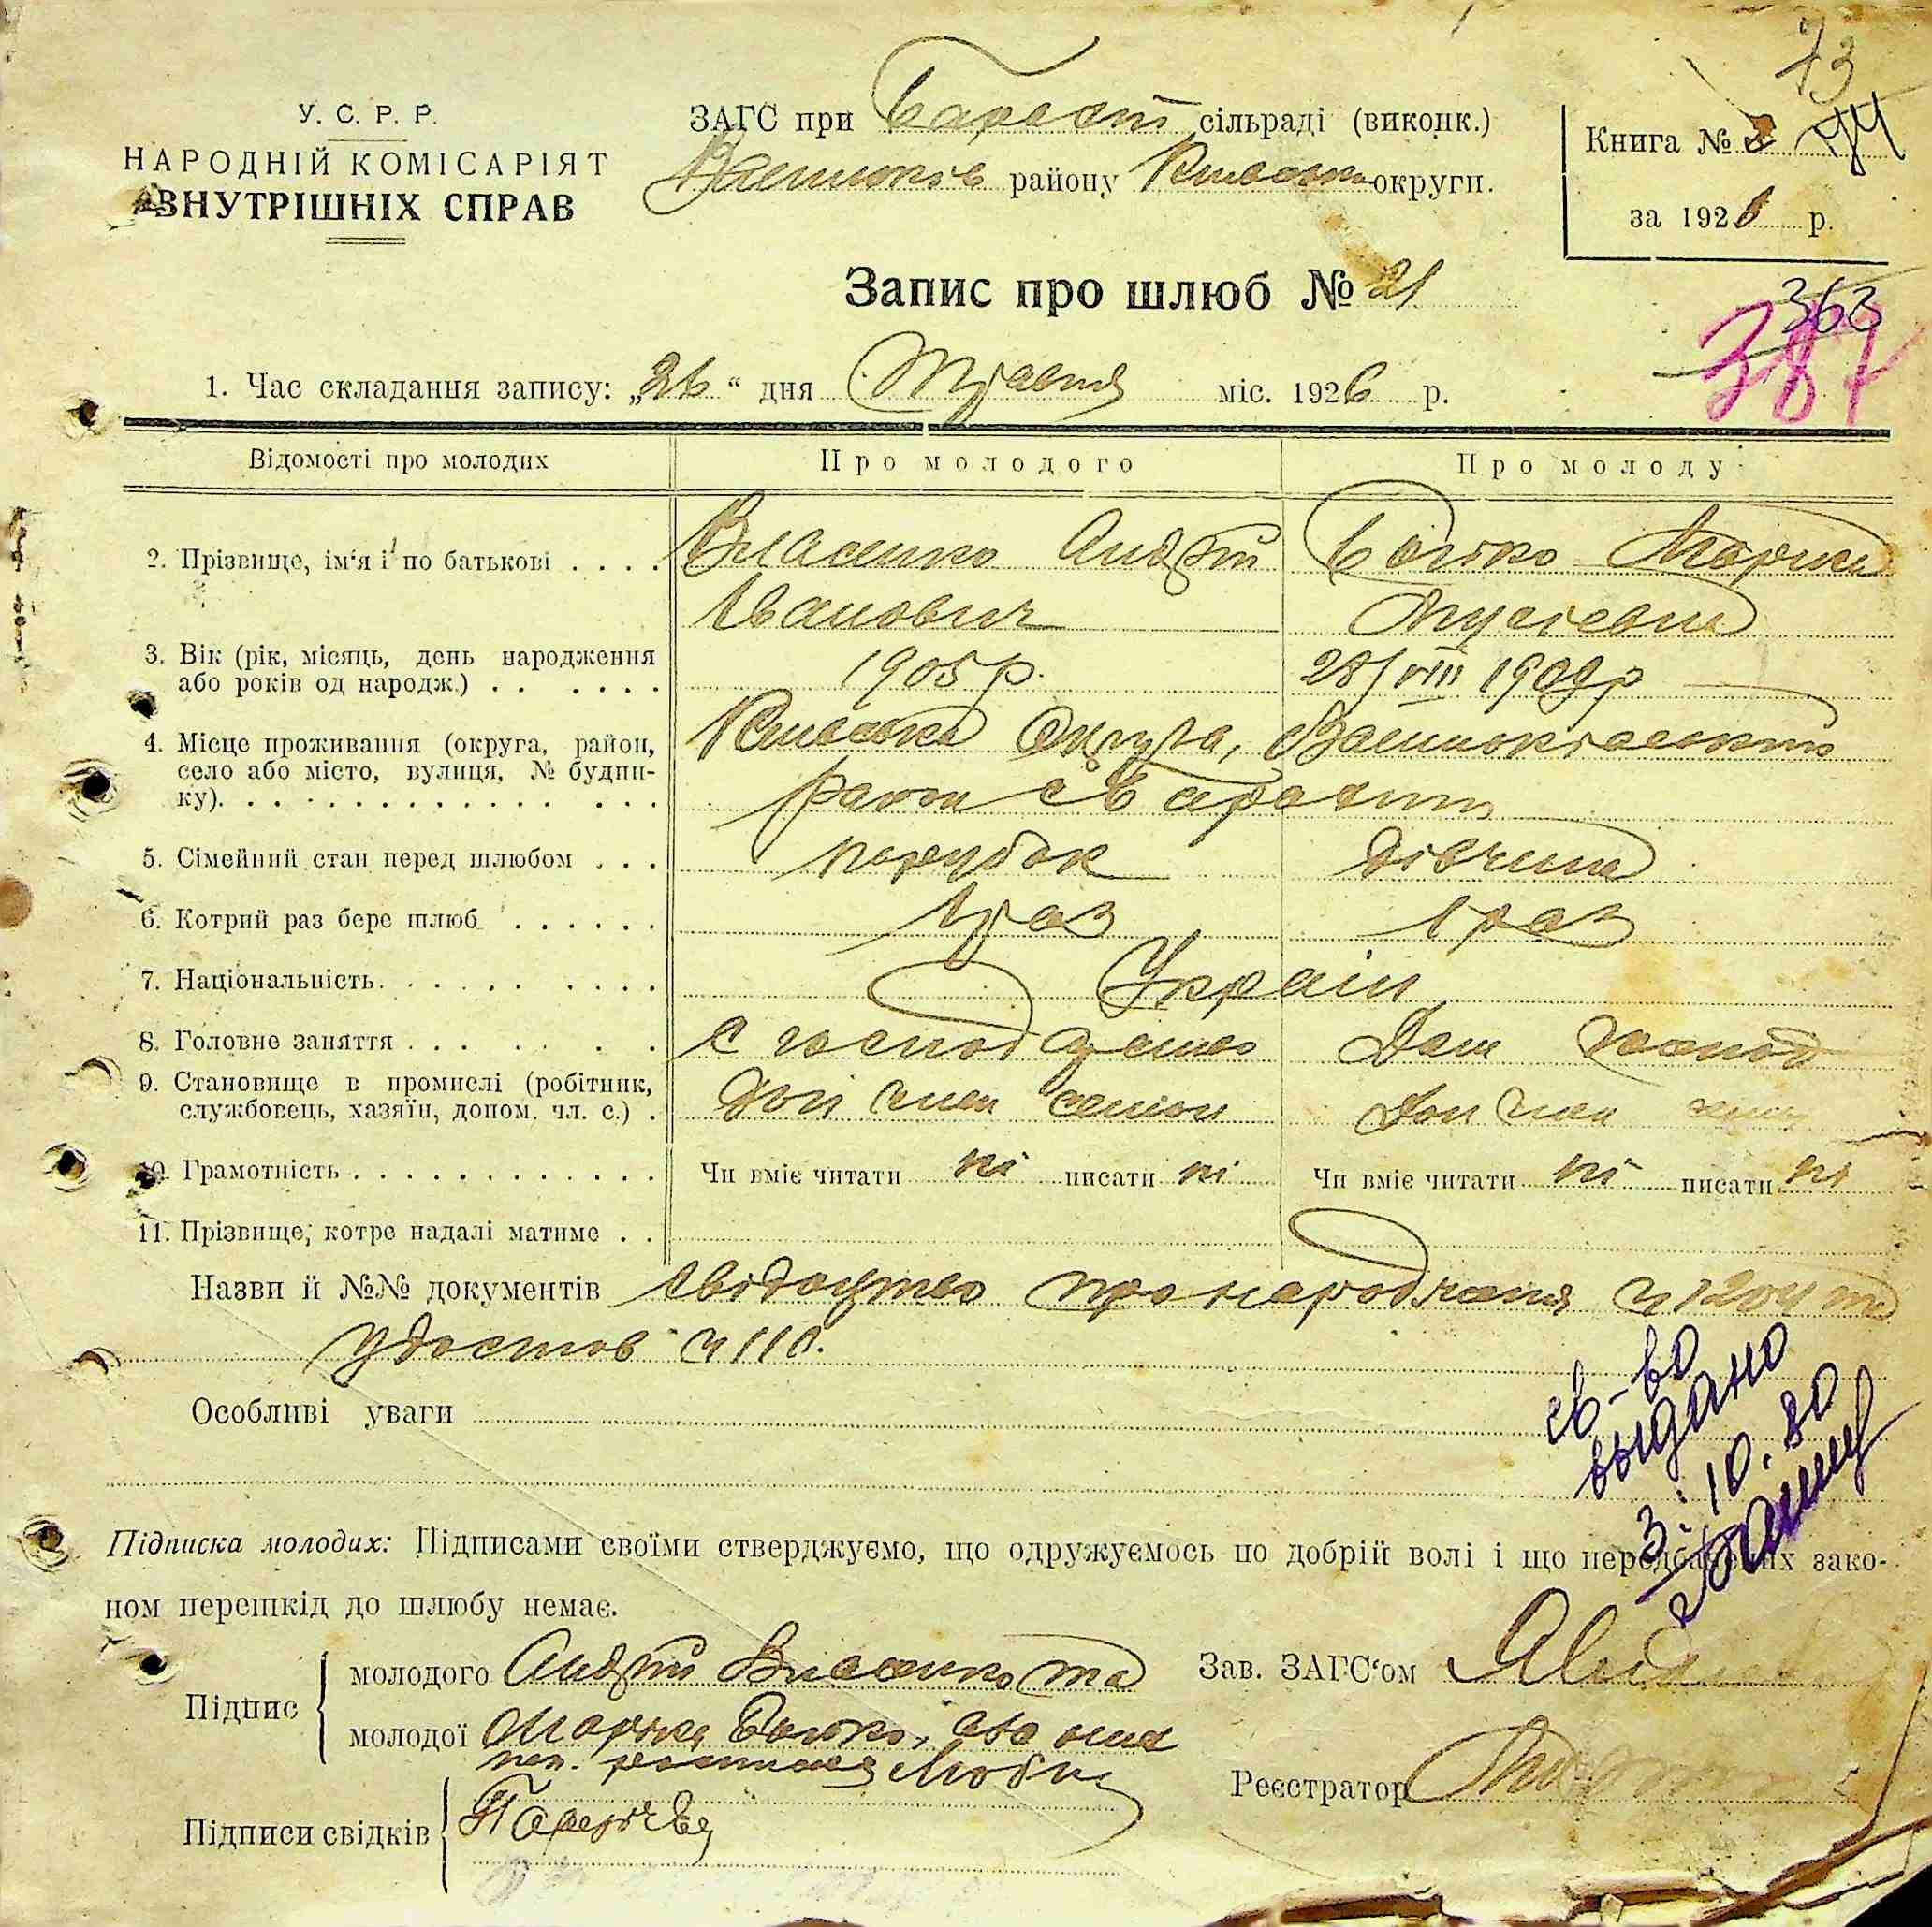 73
У. С. Р. Р.
НАРОДНІЙ КОМІСАРІЯТ
ВНУТРІШНІХ СПРАВ
ЗАГС при Барахт сільраді (виконк.)
Васильків району Київськ округи.
Книга № 74
за 1926 р.
Запис про шлюб № 21
363
387
1. Час складання запису: „26“ дня Травня міс. 1926 р.
Відомості про молодих Про молодого Про молоду
2. Прізвище, ім'я і по батькові . . . . Власенко Андрій Бойко Марія
Іванович Мусієвна
3. Вік (рік, місяць, день народження
або років од народж.) . . . . . . 1905 р. 28/VIII 1909 р
4. Місце проживання (округа, район, Київська Округа, Васильківський
село або місто, вулиця, № будин-
ку). . . . . . . . . . . . . . район с Барахти
5. Сімейний стан перед шлюбом . . . парубок дівчина
6. Котрий раз бере шлюб . . . . . . 1 раз 1 раз
7. Національність. . . . . . . . . . Україн
8. Головне заняття . . . . . . . с господарство Дом господ
9. Становище в промислі (робітник,
службовець, хазяїн, допом. чл. с.) . доп член семьи Доп член
10. Грамотність . . . . . . . . . . . . . Чи вміє читати ні писати ні Чи вміє читати ні писати ні
11. Прізвище, котре надалі матиме . .
Назви й №№ документів Свідоцтво про народження ч 1204 та
удостов ч 110.
Особливі уваги
св-во
выдано
3.10.80
Підписка молодих: Підписами своїми стверджуємо, що одружуємось по добрій волі і що передбачених зако-
ном перешкід до шлюбу немає.
Підпис
молодого Андрій Власенко та
молодої Марія Бойко, або они
Зав. ЗАГС'ом
Реєстратор
Підписи свідків